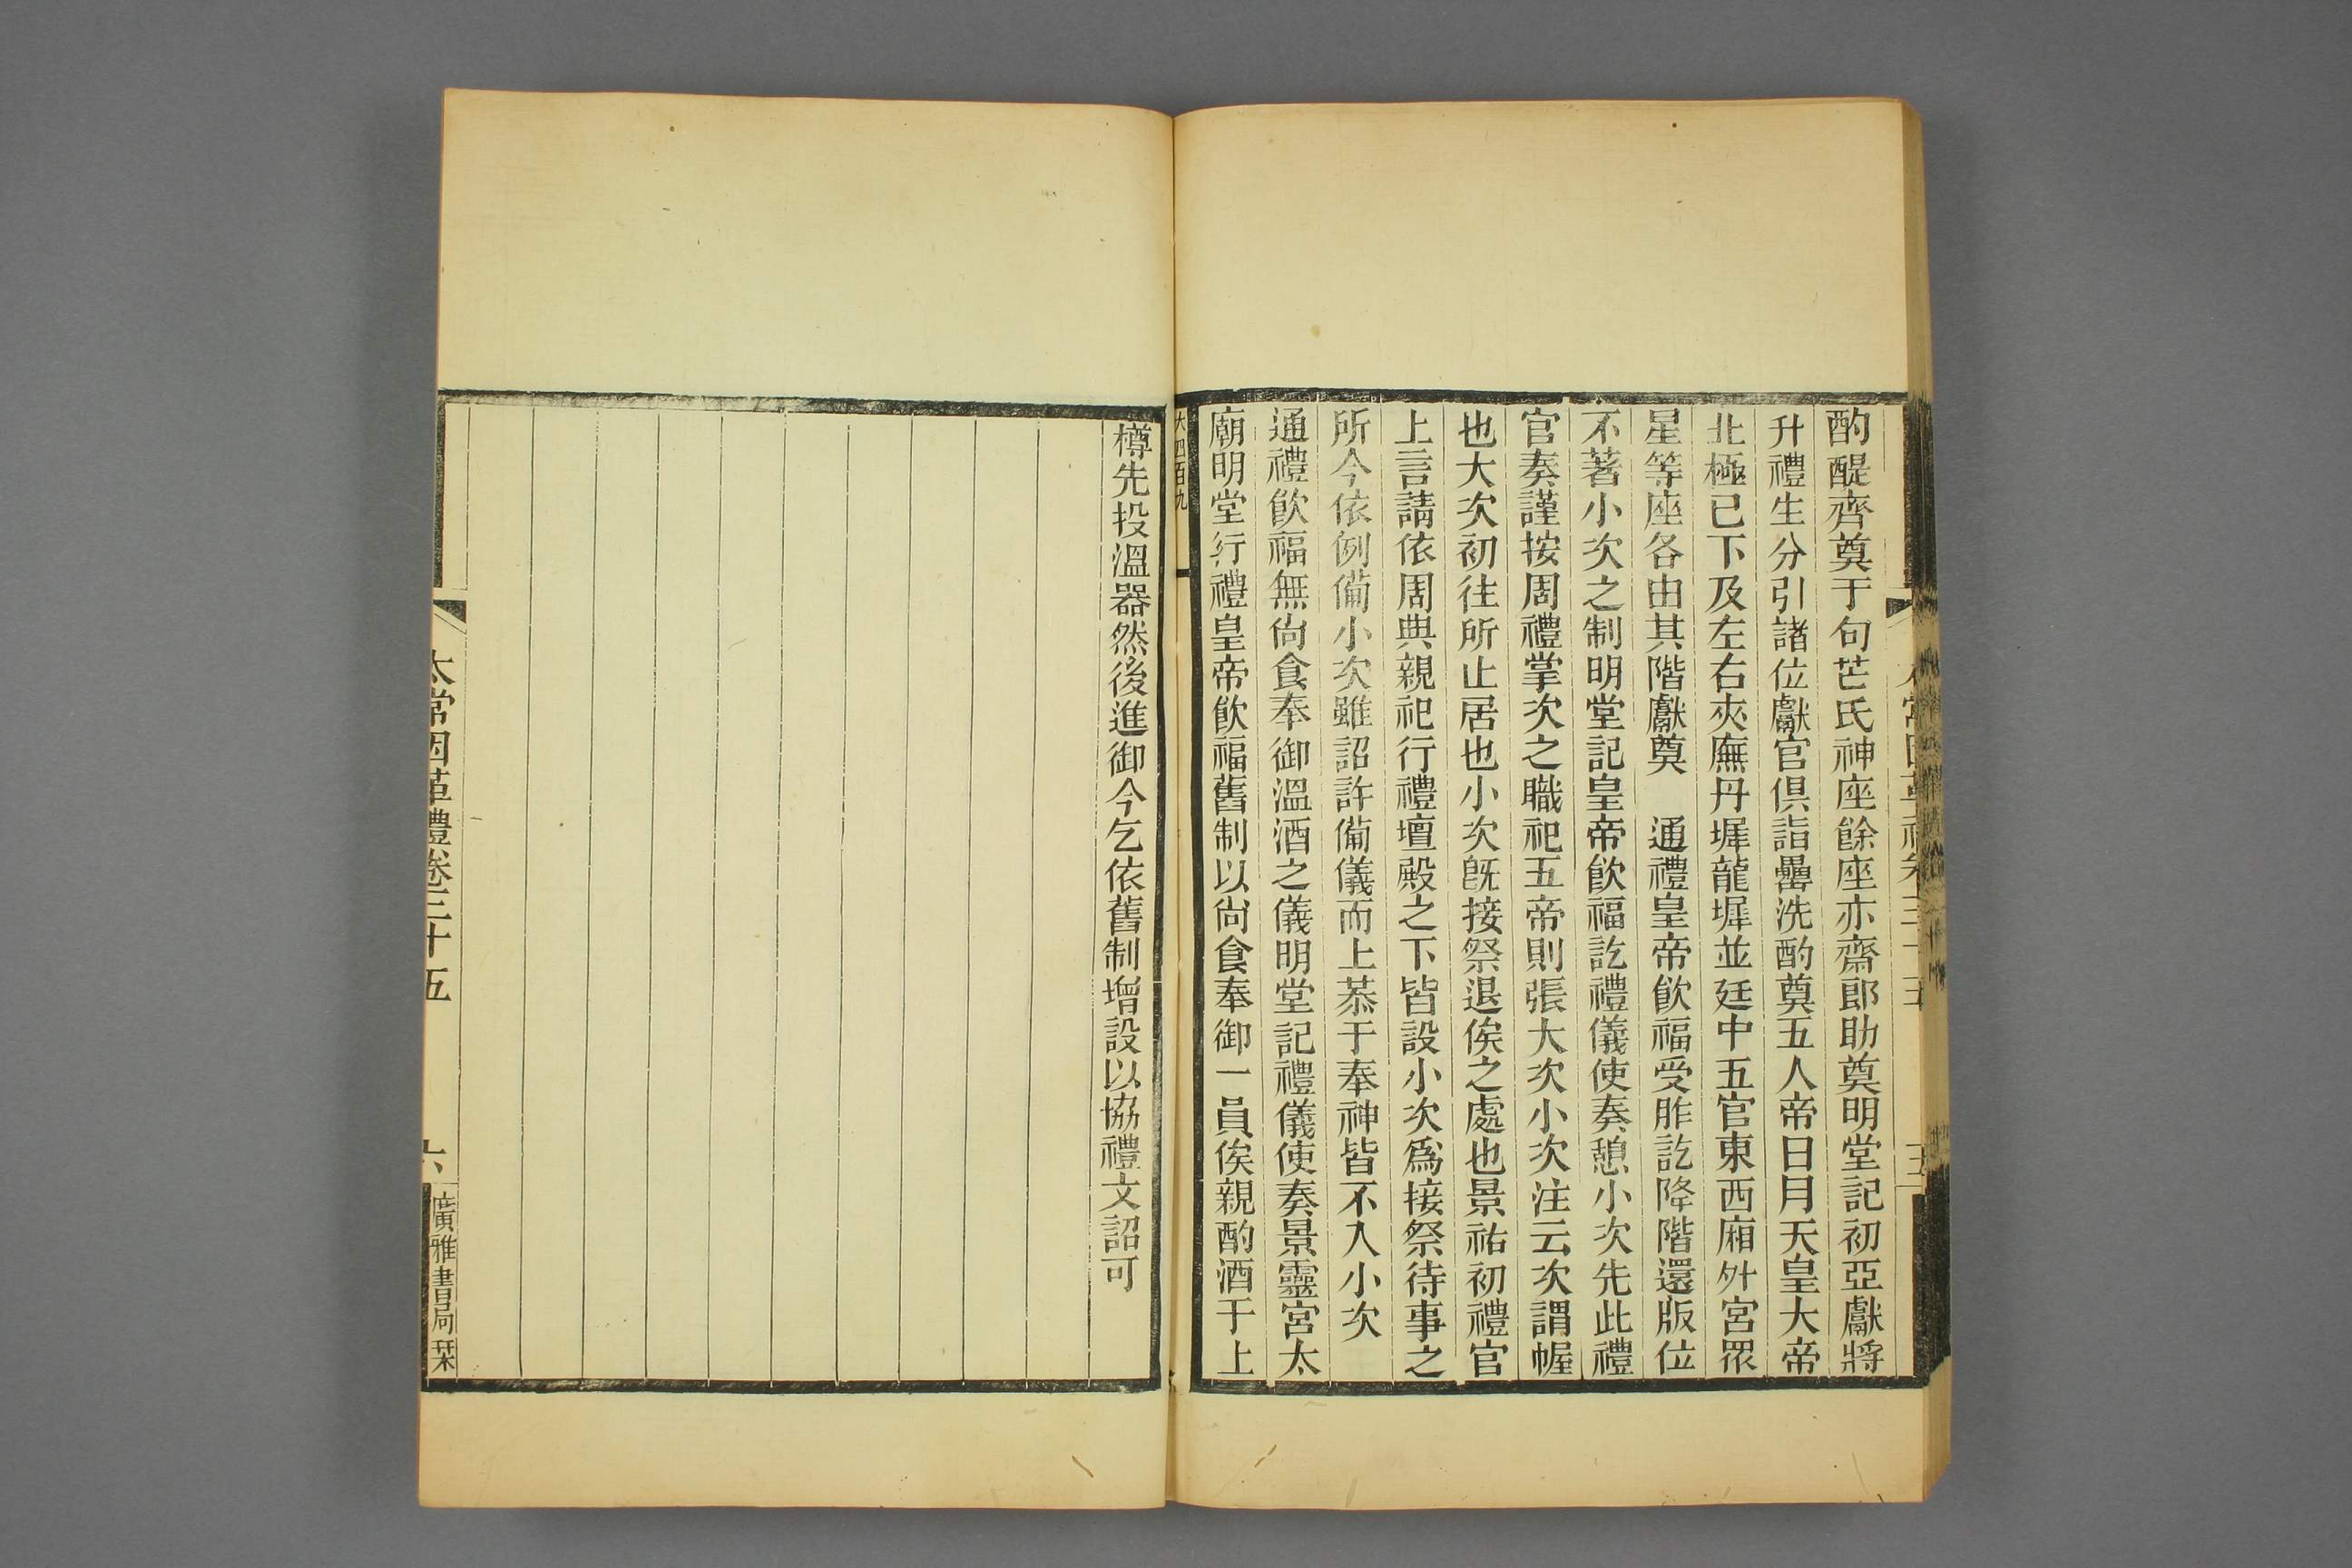 酌醍齊奠于句芒氏神座餘座亦齋郎助奠明堂記初亞獻將
升禮生分引諸位獻官俱詣罍洗酌奠五人帝日月天皇大帝
北極已下及左右夾廡丹墀龍墀並廷中五官東西廂外宮眾
星等座各由其階獻奠　通禮皇帝飲福受胙訖降階還版位
不著小次之制明堂記皇帝飲福訖禮儀使奏憩小次先此禮
官奏謹按周禮掌次之職祀五帝則張大次小次注云次謂幄
也大次初往所止居也小次既接祭退俟之處也景祐初禮官
上言請依周典親祀行禮壇殿之下皆設小次為接祭待事之
所今依例備小次雖詔許備儀而上恭于奉神皆不入小次
通禮飲福無尙食奉御溫酒之儀明堂記禮儀使奏景靈宮太
廟明堂行禮皇帝飲福舊制以尙食奉御一員俟親酌酒于上
大四百九
樽先投溫器然後進御今乞依舊制增設以協禮文詔可
太常因革禮卷三十五
六
廣雅書局栞